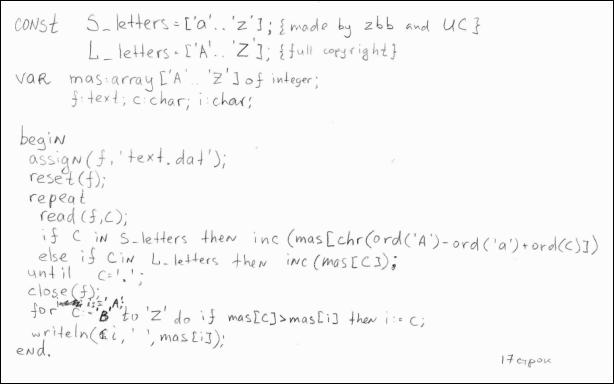 const S_letters=['a'..'z']; {made by zbb and UC}
L_letters=['A'..'Z']; {full copyright}
var mas:array['A'..'Z] of integer;
f:text; c:char; i:char;
begin
assign(f,'text.dat');
reset(f);
repeat
read(f,c);
if c in S_letters then inc(mas[chr(ord('A')-ord('a')+ord(c)])
else if c in L_letters then inc(mas[c]);
until c='.';
close(f);
i:='A';
for c:='B' to 'Z' do if mas[c]>mas[i] then i:=c;
writeln(i,' ',mas[i]);
end.
17 строк